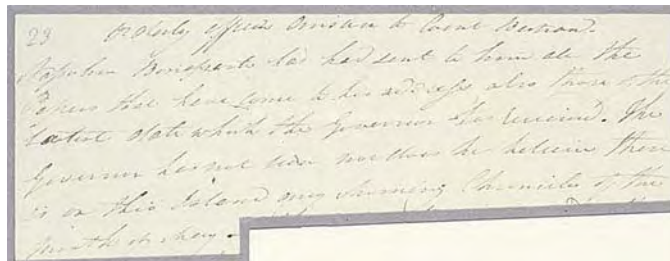 23 Orderly officer to Count Bertrand.
Napoleon Bonaparte has had sent to him all the
Papers that have come to his address also those of the
latest date which the Governor has received. The
Governor has not seen nor does he believe there
is on this Island any Morning Chronicles of the
month of May